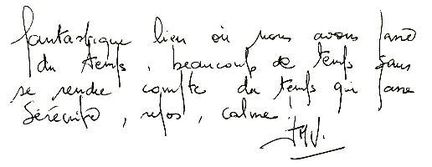 fantastique lieu où nous avons passé
du temps, beaucoup de temps sans
se rendre compte du temps qui passe
Sérénité, repos, calme,
JMV.